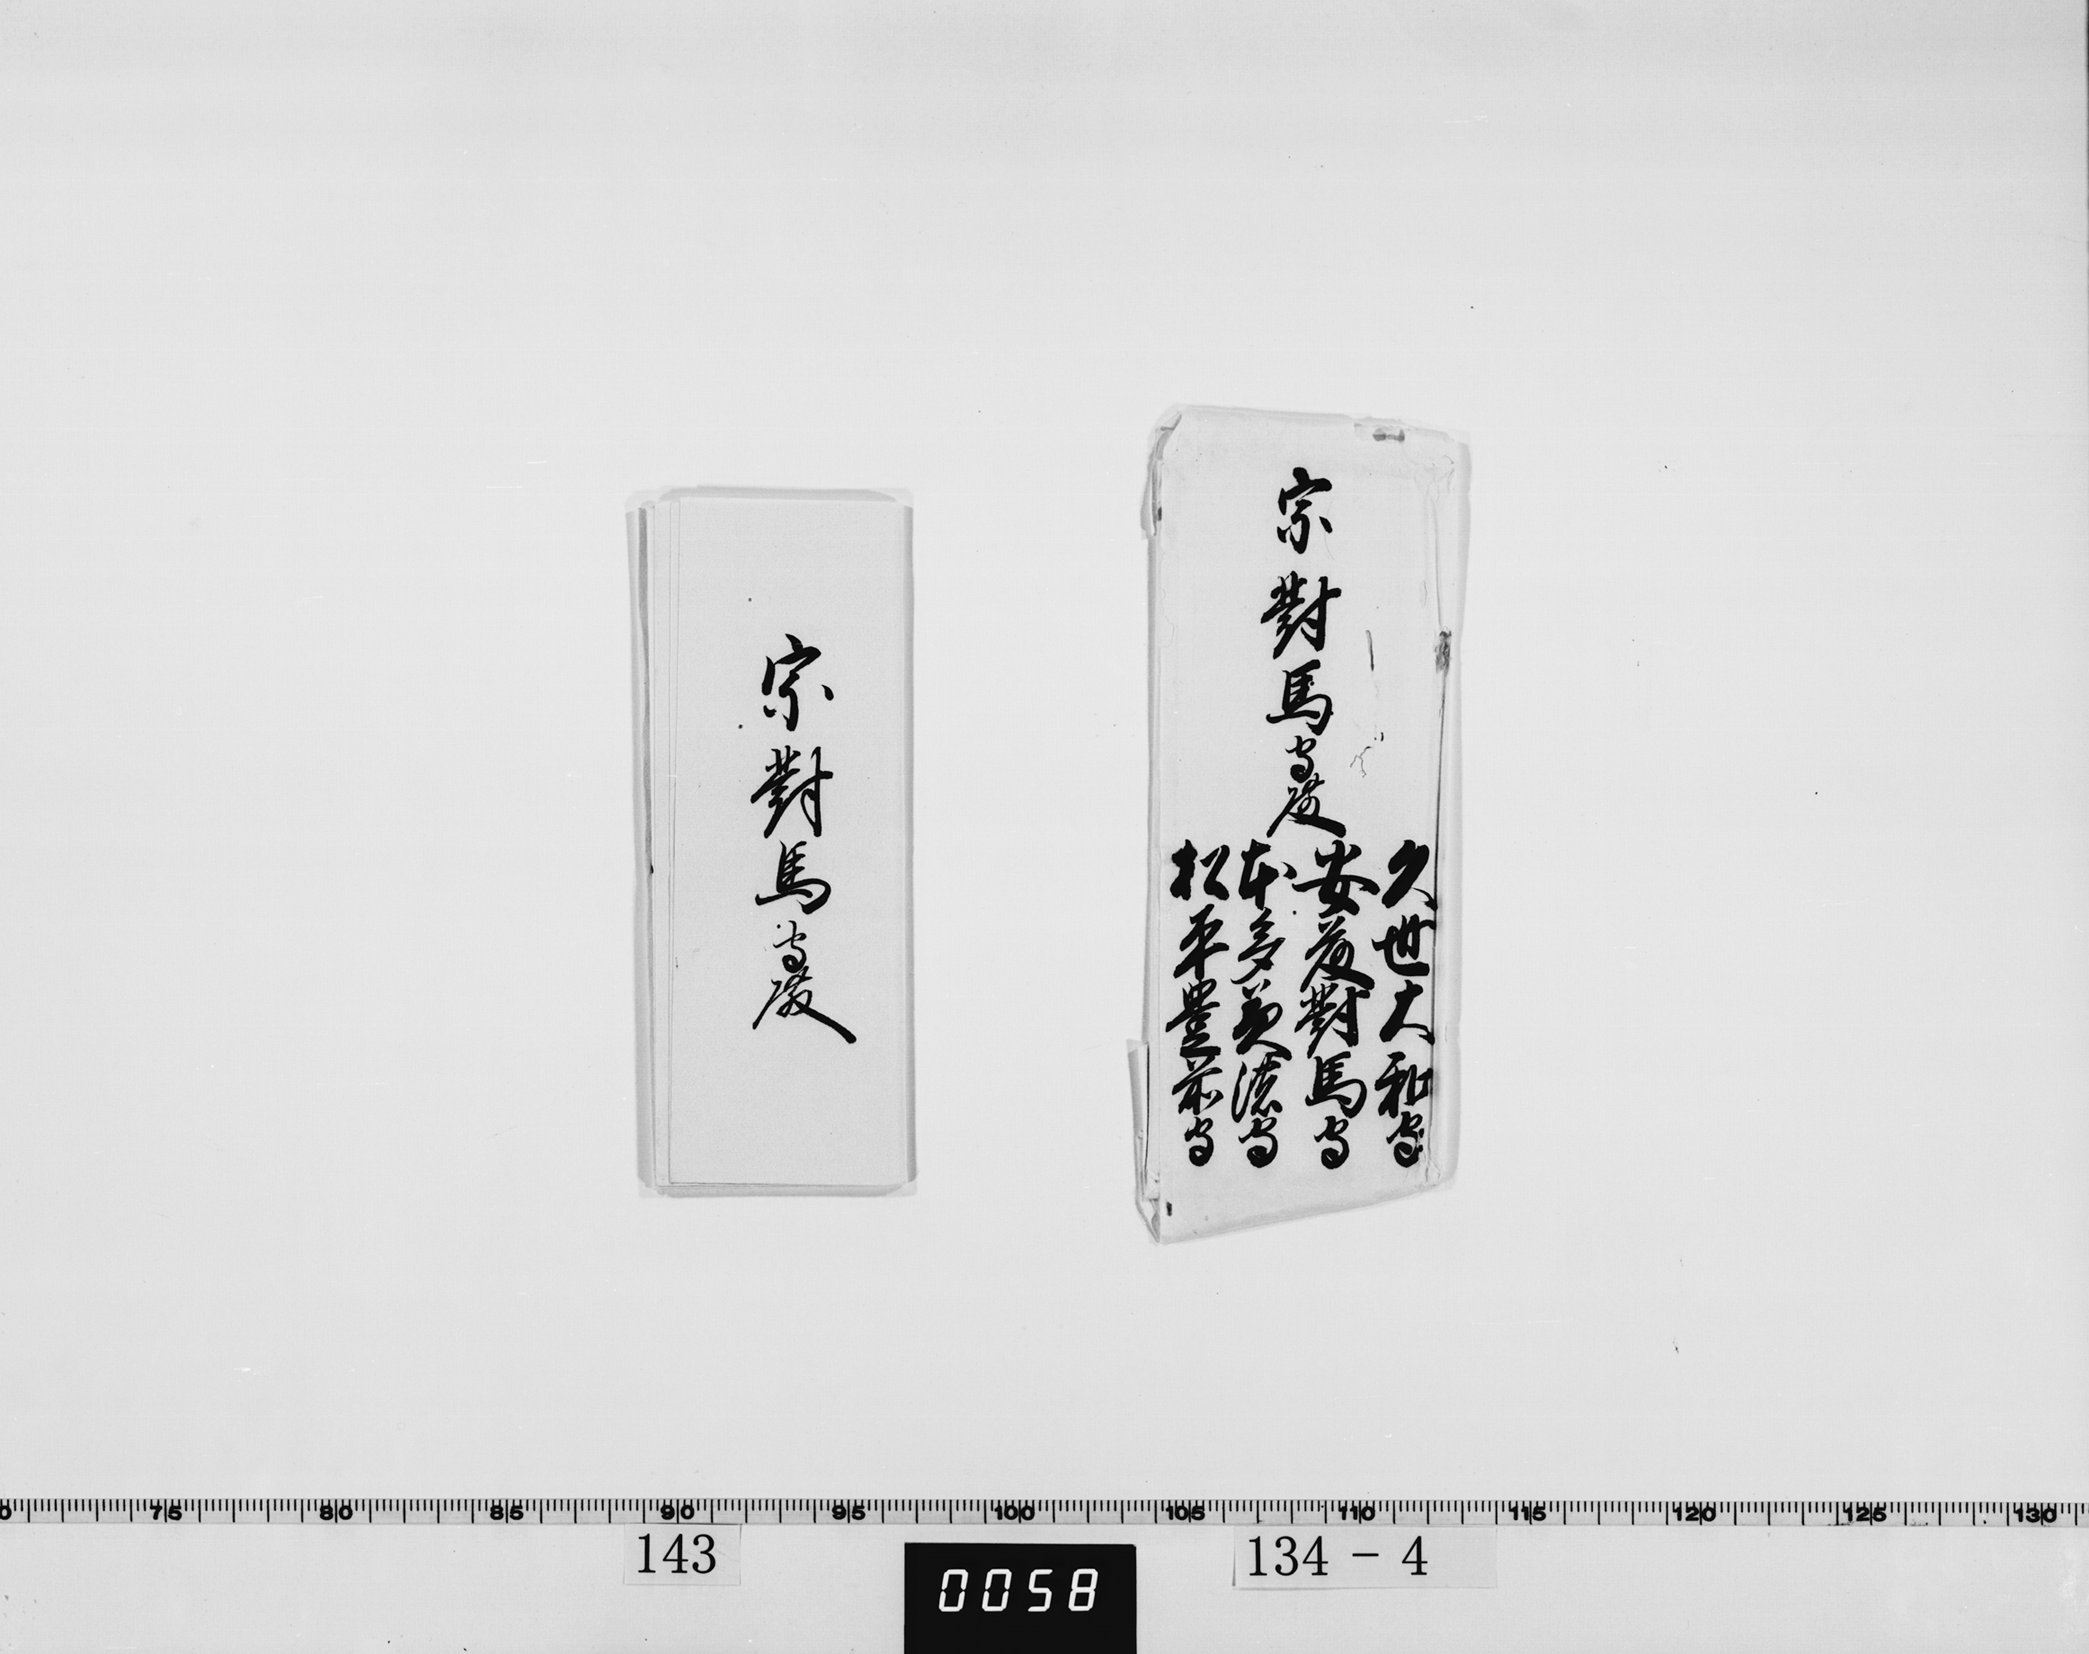 宗對馬守殿
久世大和守
安藤對馬守
本多美濃守
松平豊前守
宗對馬守殿
75 80 85 90 95 100 105 110 115 120 125 130
143
134-4
0058